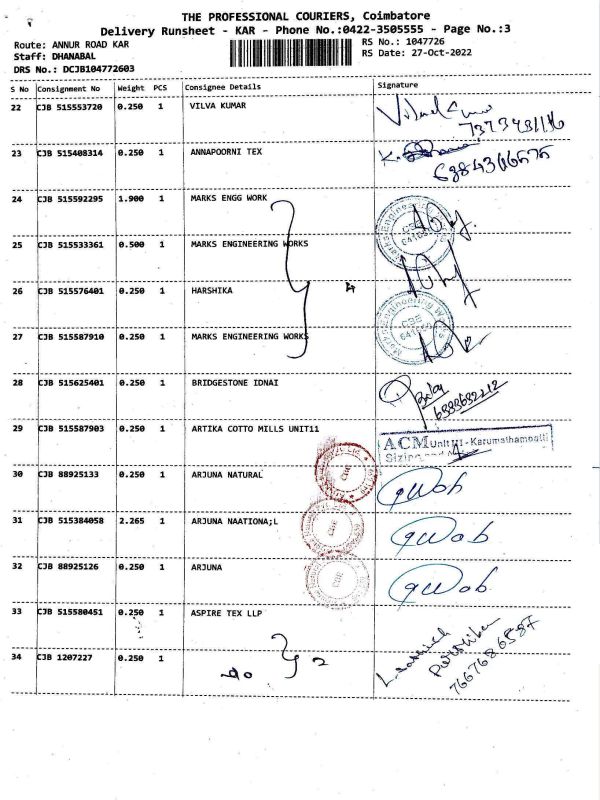 THE PROFESSIONAL COURIERS, Coimbatore
Delivery Runsheet - KAR - Phone No.:0422-3505555 - Page No.:3
Route: ANNUR ROAD KAR
Staff: DHANABAL
DRS No.: DCJB104772603
RS No.: 1047726
RS Date: 27-Oct-2022
S No Consignment No Weight PCS Consignee Details Signature
22 CJB 515553720 0.250 1 VILVA KUMAR
23 CJB 515408314 0.250 1 ANNAPOORNI TEX
24 CJB 515592295 1.900 1 MARKS ENGG WORK
25 CJB 515533361 0.500 1 MARKS ENGINEERING WORKS
26 CJB 515576401 0.250 1 HARSHIKA
27 CJB 515587910 0.250 1 MARKS ENGINEERING WORKS
28 CJB 515625401 0.250 1 BRIDGESTONE IDNAI
29 CJB 515587903 0.250 1 ARTIKA COTTO MILLS UNIT11
ACM Unit III - Karumathampatti
Sizing and
30 CJB 88925133 0.250 1 ARJUNA NATURAL
31 CJB 515384058 2.265 1 ARJUNA NAATIONA;L
32 CJB 88925126 0.250 1 ARJUNA
33 CJB 515580451 0.250 1 ASPIRE TEX LLP
7667686587
34 CJB 1207227 0.250 1